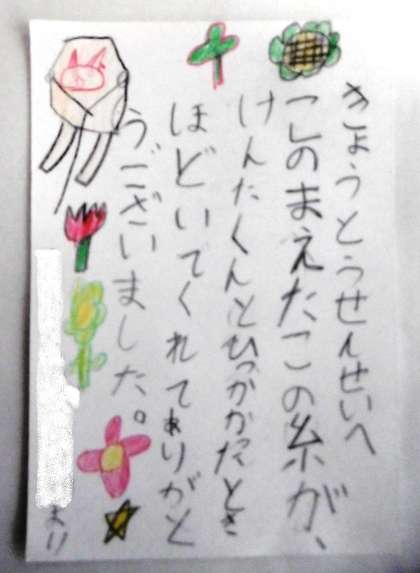 きょうとうせんせいへ
このまえたこの糸が、
けんたくんとひっかかったとき
ほどいてくれてありがと
うございました。
より